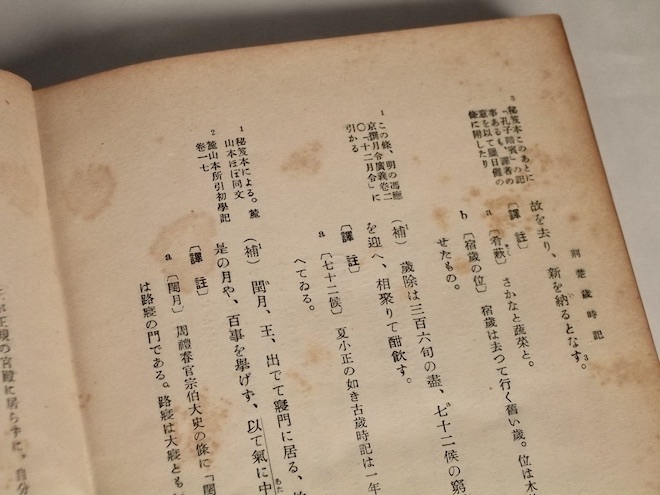 荊楚歲時記
故を去り、新を納るとなす。3
〔譯註〕
a〔肴蔌〕さかなと蔬菜と。
b〔宿歲の位〕宿歲は去つて行く舊い歲。位は木
せたもの。
(補)歲除は三百六旬の盡、七十二候の窮
を迎へ、相聚りて酣飮す。
〔譯註〕
a〔七十二候〕夏小正の如き古歲時記は一年
へてゐる。
(補)閏月、王、出でて寢門に居る、
是の月や、百事を擧げず、以て氣に中
〔譯註〕
a〔閏月〕周禮春官宗伯大史の條に「閏
は路寢の門である。路寢は大寢とも
3 秘笈本このあとに
「孔子陪賓」の記
事あるも、譯者の
意を以て臘日儺の
條に附したり
1 この條、明の馮應
京撰月令廣義卷二
〇「十二月令」に
引かる
1 秘笈本による。麓
山本ほぼ同文
2 麓山本所引初學記
卷一七
正規の宮殿に居らずに、自分